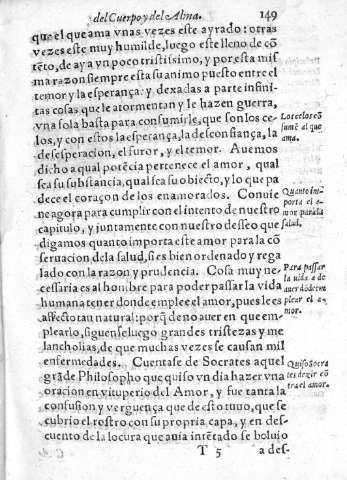 del Cuerpo y del Alma. 149
que el que ama vnas vezes este ayrado: otras
vezes este muy humilde, luego este lleno de cõ
tẽto, de ay a vn poco tristissimo, y por esta mis
ma razon siempre esta su animo puesto entre el
temor y la esperança: y dexadas a parte infini-
tas cosas que le atormentan y le hazen guerra,
vna sola basta para consumirle, que son los ce-
los, y con estos la esperança, la desconfiança, la
desesperacion, el furor, y el temor. Auemos
dicho a qual potẽcia pertenece el amor, qual
sea su substancia, qual sea su obiecto, y lo que pa
dece el coraçon de los enamorados. Conuie
ne agora para cumplir con el intento de nuestro
capitulo, y juntamente con nuestro desseo que
digamos quanto importa este amor para la cõ
seruacion dela salud, si es bien ordenado y rega
lado con la razon y prudencia. Cosa muy ne-
cessaria es al hombre para poder passar la vida
humana tener donde emplee el amor, pues le es
affecto tan natural: porq̃ de no auer en que em-
plearlo, siguense luego grandes tristezas y me
lancholias, de que muchas vezes se causan mil
enfermedades. Cuentase de Socrates aquel
grãde Philosopho que quiso vn dia hazer vna
oracion en vituperio del Amor, y fue tanta la
confusion y verguença que de esto tuuo, que se
cubrio el rostro con su propria capa, y en des-
cuento de la locura que auia intẽtado se boluio
T 5 a des-
Los celos cõ
sumẽ al que
ama.
Quanto im-
porta el a-
mor para la
salud.
Para passar
la vida a de
auer dõde em
plear el a-
mor.
Quiso Socra
tes dezir cõ
tra el amor.